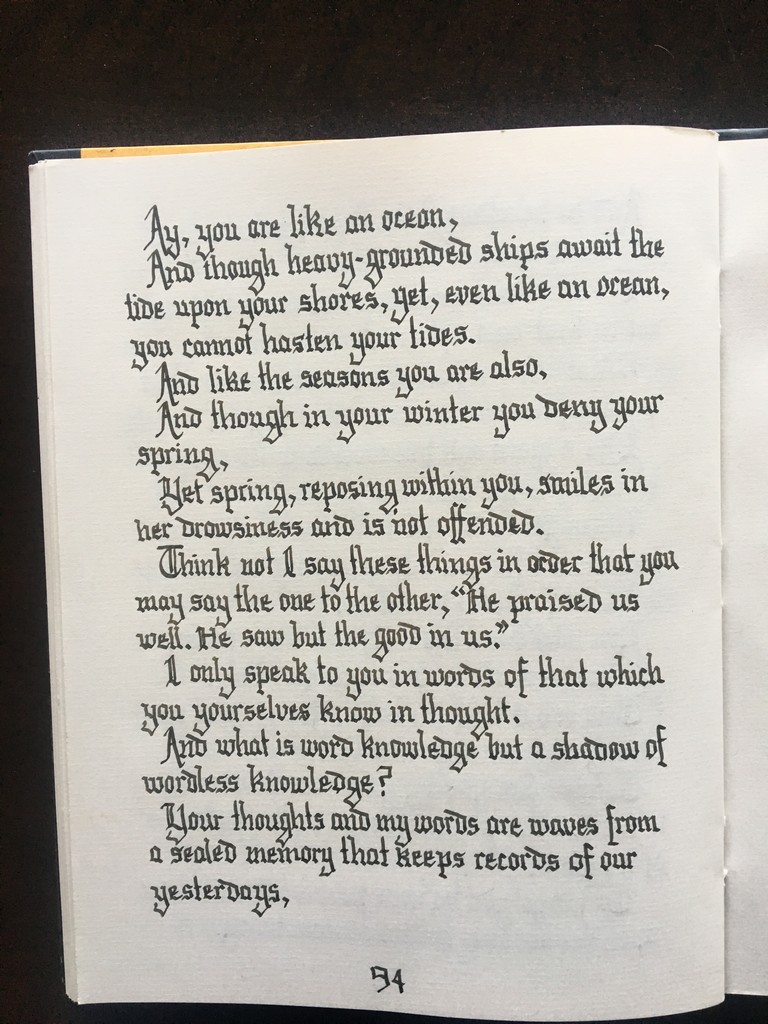 Ay, you are like an ocean,
And though heavy-grounded ships await the
tide upon your shores, yet, even like an ocean,
you cannot hasten your tides.
And like the seasons you are also,
And though in your winter you deny your
spring,
Yet spring, reposing within you, smiles in
her drowsiness and is not offended.
Think not I say these things in order that you
may say the one to the other, “He praised us
well. He saw but the good in us.”
I only speak to you in words of that which
you yourselves know in thought.
And what is word knowledge but a shadow of
wordless knowledge?
Your thoughts and my words are waves from
a sealed memory that keeps records of our
yesterdays,
94